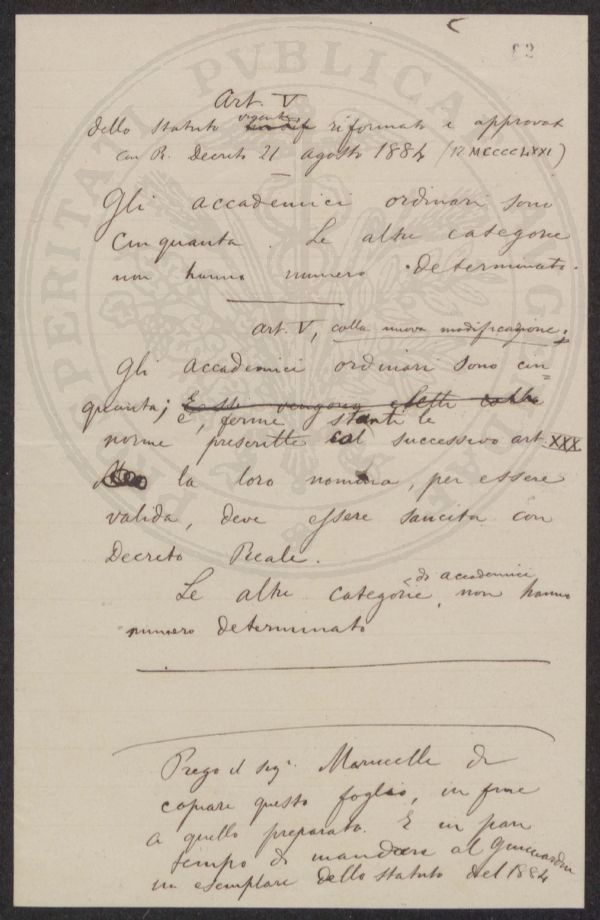 82
Art. V
dello statuto vigente riformato e approvat
con R. Decreto 21 agosto 1884 (N. MCCCCLXXI)
Gli accademici ordinari sono
cinquanta. Le altre categorie
non hanno numero determinato.
Art. V, colla nuova modificazione:
Gli accademici ordinari sono cin=
quanta; Essi vengono eletti colle
e, ferme stanti le
norme prescritte dal successivo art. XXX
la loro nomina, per essere
valida, deve essere sancita con
Decreto Reale.
di accademici
Le altre categorie non hanno
numero determinato
Prego il sigr. Marucelli di
copiare questo foglio, in fine
a quello preparato. E in pari
tempo di mandare al
un esemplare dello statuto del 1884
PERITATI PVBLICAE